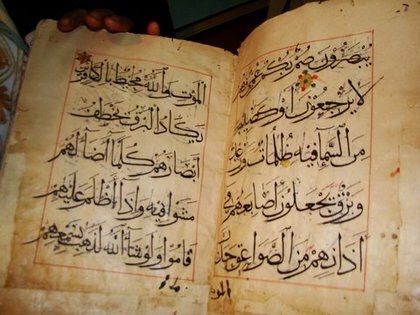 يبصرون صم بكم عمي فهم
لا يرجعون أو كصيب
من السما فيه ظلمات ورعد
وبرق يجعلون أصابعهم في
آذانهم من الصواعق حذر
المو
الموت والله محيط بالكافرين
يكاد البرق يخطف
أبصارهم كلما أضاء لهم
مشوا فيه وإذا أظلم عليهم
قاموا ولو شاء الله لذهب بسمعهم